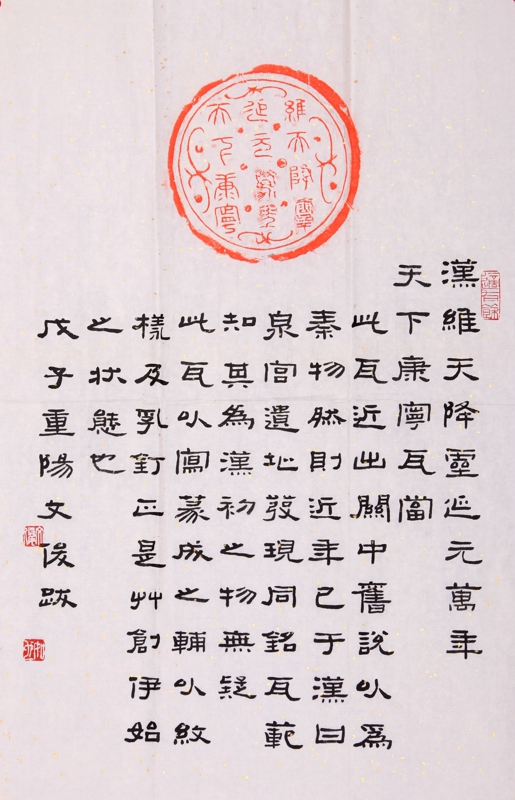 維天降靈
延元萬年
天下康寧
漢維天降靈延元萬年
天下康寧瓦當
此瓦近出關中舊說以為
秦物然則近年已于漢甘
泉宮遺址發現同銘瓦範
知其為漢初之物無疑
此瓦以寫篆成之輔以紋
樣及乳釘正是艸創伊始
之狀態也
戊子重陽文俊跋